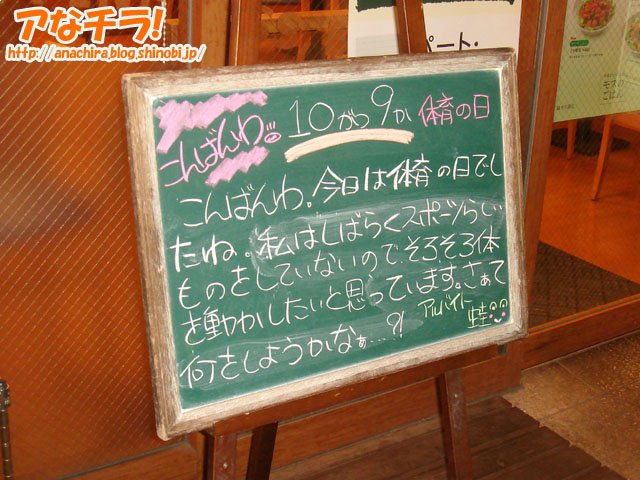 アなチラ!
http://anachira.blog.shinobi.jp/
こんばんわ!!! 10がつ9か 体育の日
こんばんわ。今日は体育の日でし
たね。私はしばらくスポーツらしい
ものをしていないので、そろそろ体
を動かしたいと思っています。さぁて
何をしようかなぁ…?!
アルバイト
蛙
パート・